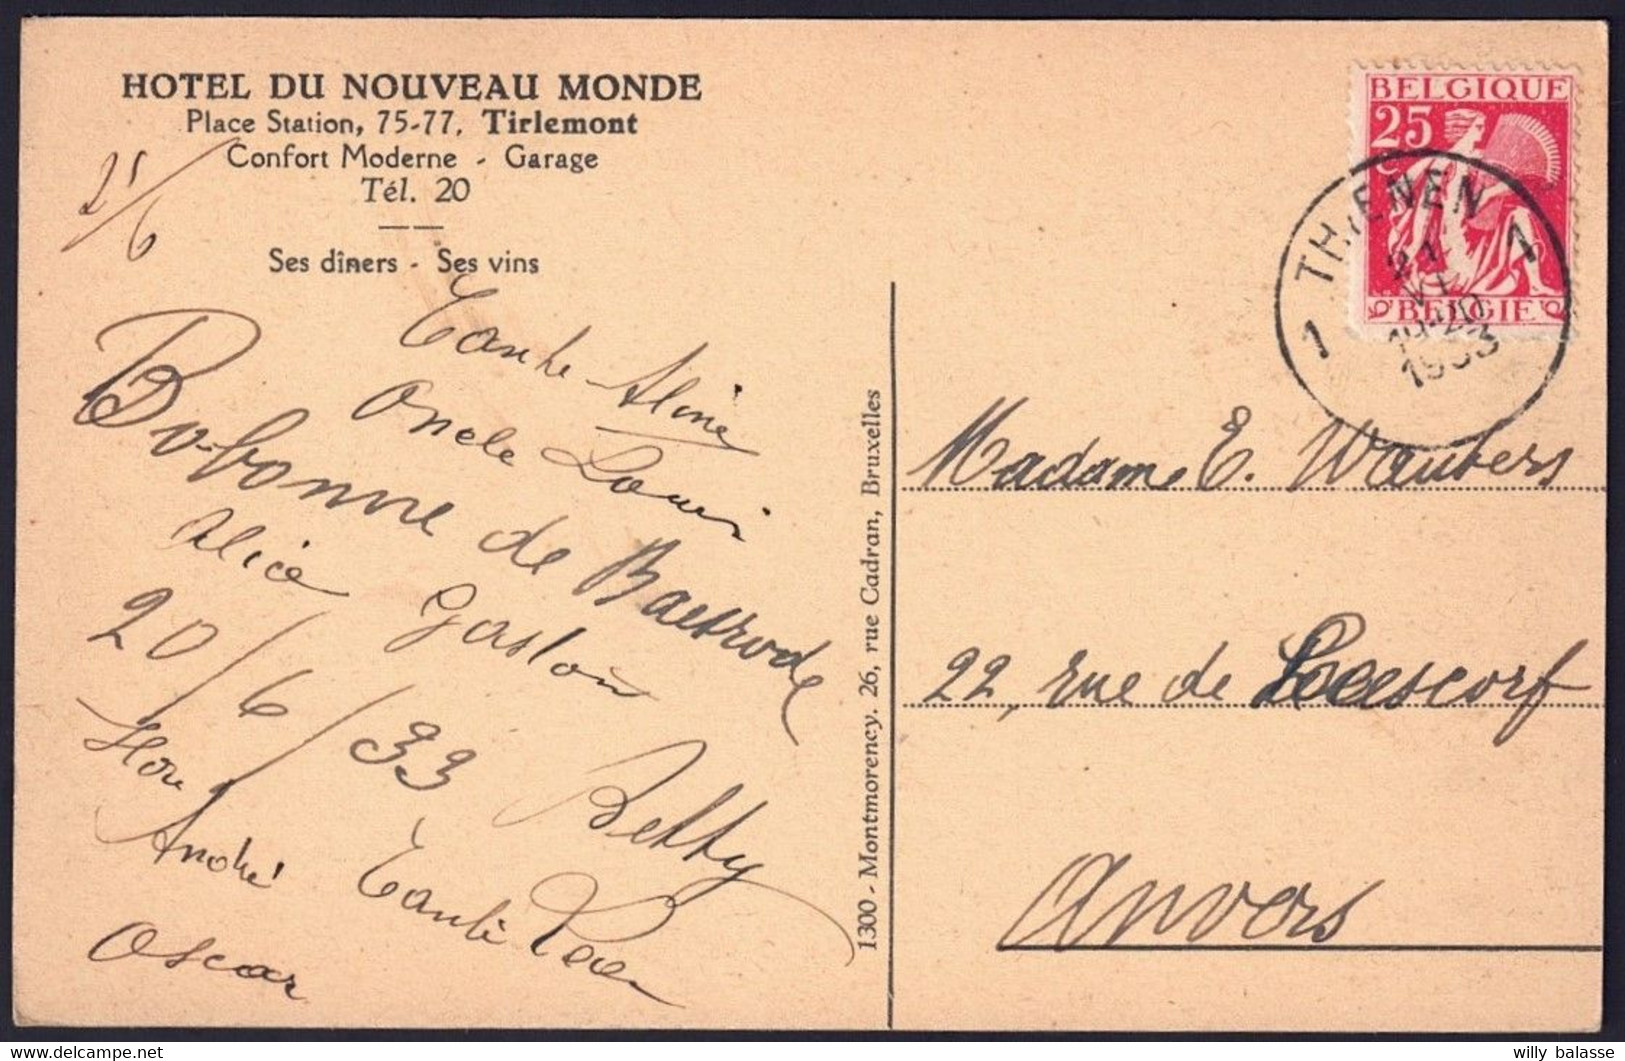 HOTEL DU NOUVEAU MONDE
Place Station, 75-77, Tirlemont
Confort Moderne - Garage
Tél. 20
Ses dîners - Ses vins
21/6
Tante Aline
Oncle Louis
Bobonne de Baesrode
Alice Gaston
20/6/33
Flore Betty
André Tante
Oscar
1300 - Montmorency. 26, rue Cadran, Bruxelles
BELGIQUE
25
C
BELGIE
1 THIENEN 1
21
VI
19-20
1933
Madame E. Wauters
22, rue de
Anvers
willy balasse